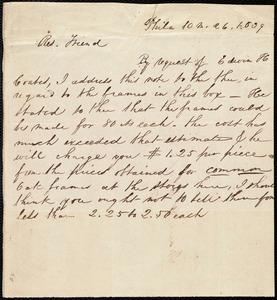 Phila 10 m. 26. 1839
Res. Friend
By request of Edwin H
Coates, I address this note to the thee, in
regard to the frames in this box - He
stated to thee that the frames could
be made for 80 cts each. the cost has
much exceeded that estimate & he
will charge you $1.25 per piece -
from the prices obtained for common
frames at the stores here, I should
think you ought not to sell them for
less than 2.25 to 2.50 each